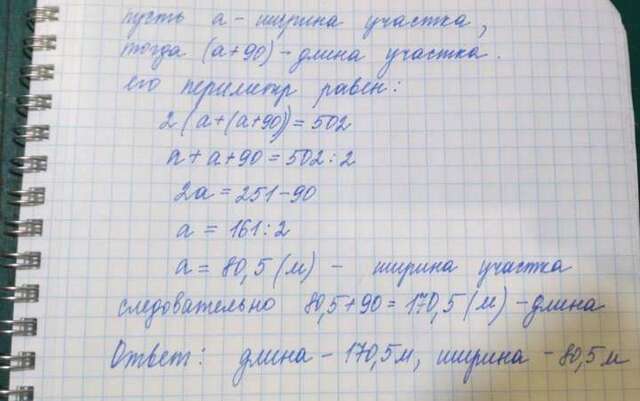 пусть a - ширина участка,
тогда (a+90) - длина участка.
его периметр равен:
2(a+(a+90))=502
a+a+90=502:2
2a=251-90
a=161:2
a=80,5(м) - ширина участка
следовательно 80,5+90=170,5(м)-длина
Ответ: длина - 170,5м, ширина - 80,5м